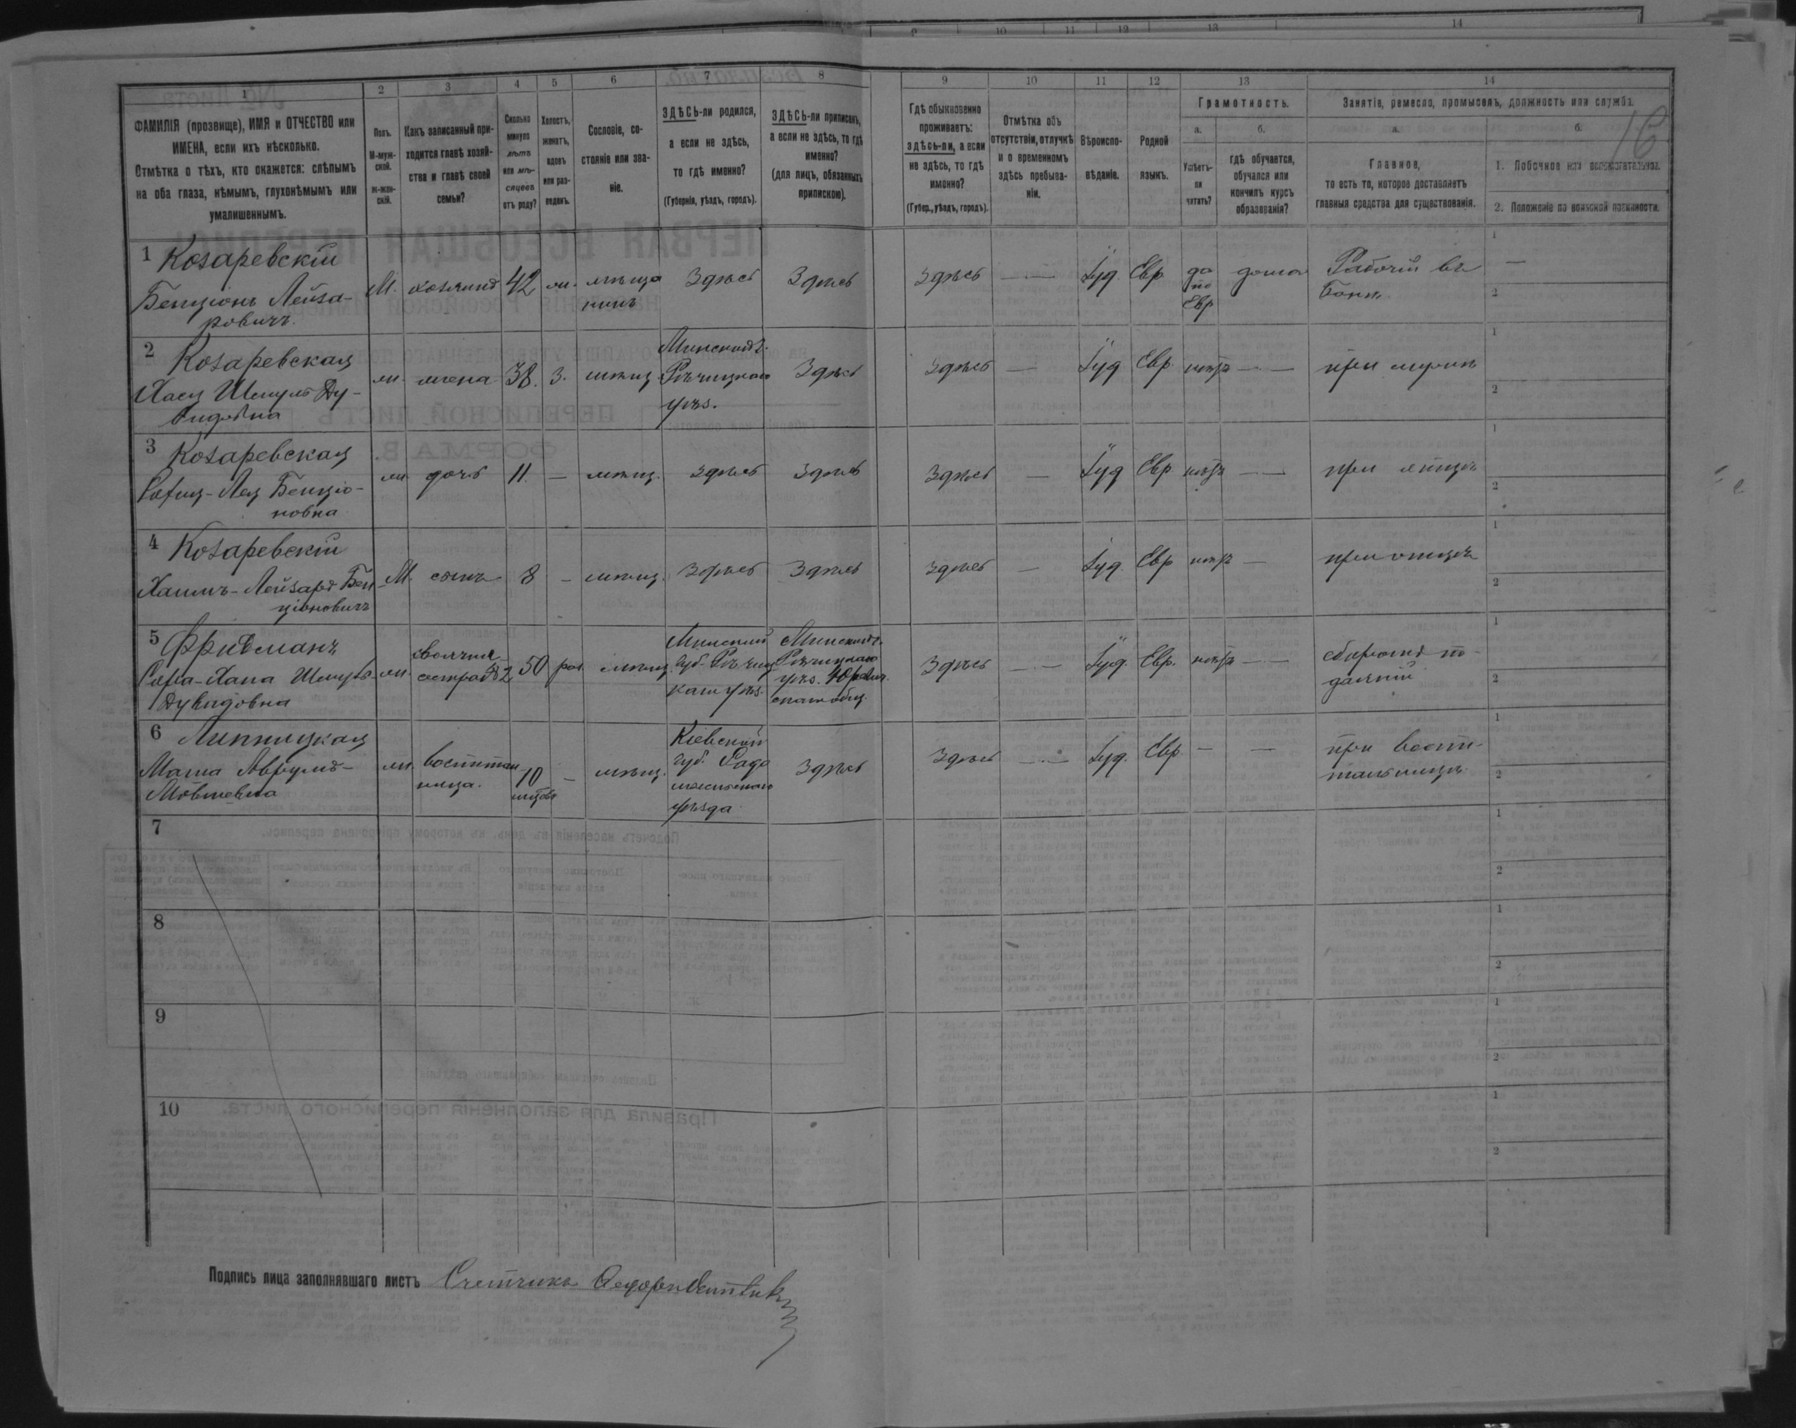 1 2 3 4 5 6 7 8 9 10 11 12 13 14
ФАМИЛІЯ (прозвище), ИМЯ и ОТЧЕСТВО или
ИМЕНА, если ихъ нѣсколько.
Отмѣтка о тѣхъ, кто окажется: слѣпымъ
на оба глаза, нѣмымъ, глухонѣмымъ или
умалишеннымъ.
Полъ.
М-муж-
ской.
ж-жен-
скій.
Какъ записанный при-
ходится главѣ хозяй-
ства и главѣ своей
семьи?
Сколько
минуло
лѣтъ
или мѣ-
сяцевъ
отъ роду?
Холостъ,
женатъ,
вдовъ
или раз-
веденъ.
Сословіе, со-
стояніе или зва-
ніе.
ЗДѢСЬ-ли родился,
а если не здѣсь,
то гдѣ именно?
(Губернія, уѣздъ, городъ).
ЗДѢСЬ-ли приписанъ,
а если не здѣсь, то гдѣ
именно?
(для лицъ, обязанныхъ
припискою).
Гдѣ обыкновенно
проживаетъ:
здѣсь-ли, а если
не здѣсь, то гдѣ
именно?
(Губер., уѣздъ, городъ).
Отмѣтка объ
отсутствіи, отлучкѣ
и о временномъ
здѣсь пребыва-
ніи.
Вѣроиспо-
вѣданіе.
Родной
языкъ.
Грамотность.
а.
Умѣетъ-
ли
читать?
б.
гдѣ обучается,
обучался или
кончилъ курсъ
образованія?
Занятіе, ремесло, промыселъ, должность или служба.
а.
Главное,
то есть то, которое доставляетъ
главныя средства для существованія.
б.
1. Побочное или вспомогательное.
2. Положеніе по воинской повинности.
16
1 Козаревскій
Бенціонъ Лейза-
ровичъ
М. хозяинъ 42 ж. мѣща
нинъ
Здѣсь Здѣсь Здѣсь — Іуд Евр да
по
Евр
дома Рабочій въ
2 Козаревская
Хася Шмулъ Ду-
видовна
ж. жена 38. З. мѣщ.
Минской г.
Рѣчицкаго
уѣз.
Здѣсь Здѣсь — Іуд Евр нѣтъ — при мужѣ
3 Козаревская
Бенціо-
новна
ж. дочь 11. — мѣщ. Здѣсь Здѣсь Здѣсь — Іуд Евр нѣтъ — при отцѣ
4 Козаревскій
Хаимъ-Лейзаръ Бен
ціоновичъ
М. сынъ 8 — мѣщ. Здѣсь Здѣсь Здѣсь — Іуд. Евр нѣтъ — при отцѣ
5
Сора-Хана Шмулъ
Дувидовна
ж. своячин
сестра № 2 50 мѣщ
Минской
губ. Рѣчиц
каго уѣз.
Минской г.
Рѣчицкаго
уѣз.
Здѣсь — Іуд. Евр. нѣтъ —
6 Липницкая
Маша Аврумъ-
Мовшевна
ж. воспитан
ница. 10
мѣсяц — мѣщ.
Кіевской
губ. Радо
мысльскаго
уѣзда
Здѣсь Здѣсь — Іуд. Евр — — при воспи-
7
8
9
10
Подпись лица заполнявшаго листъ Счетчикъ